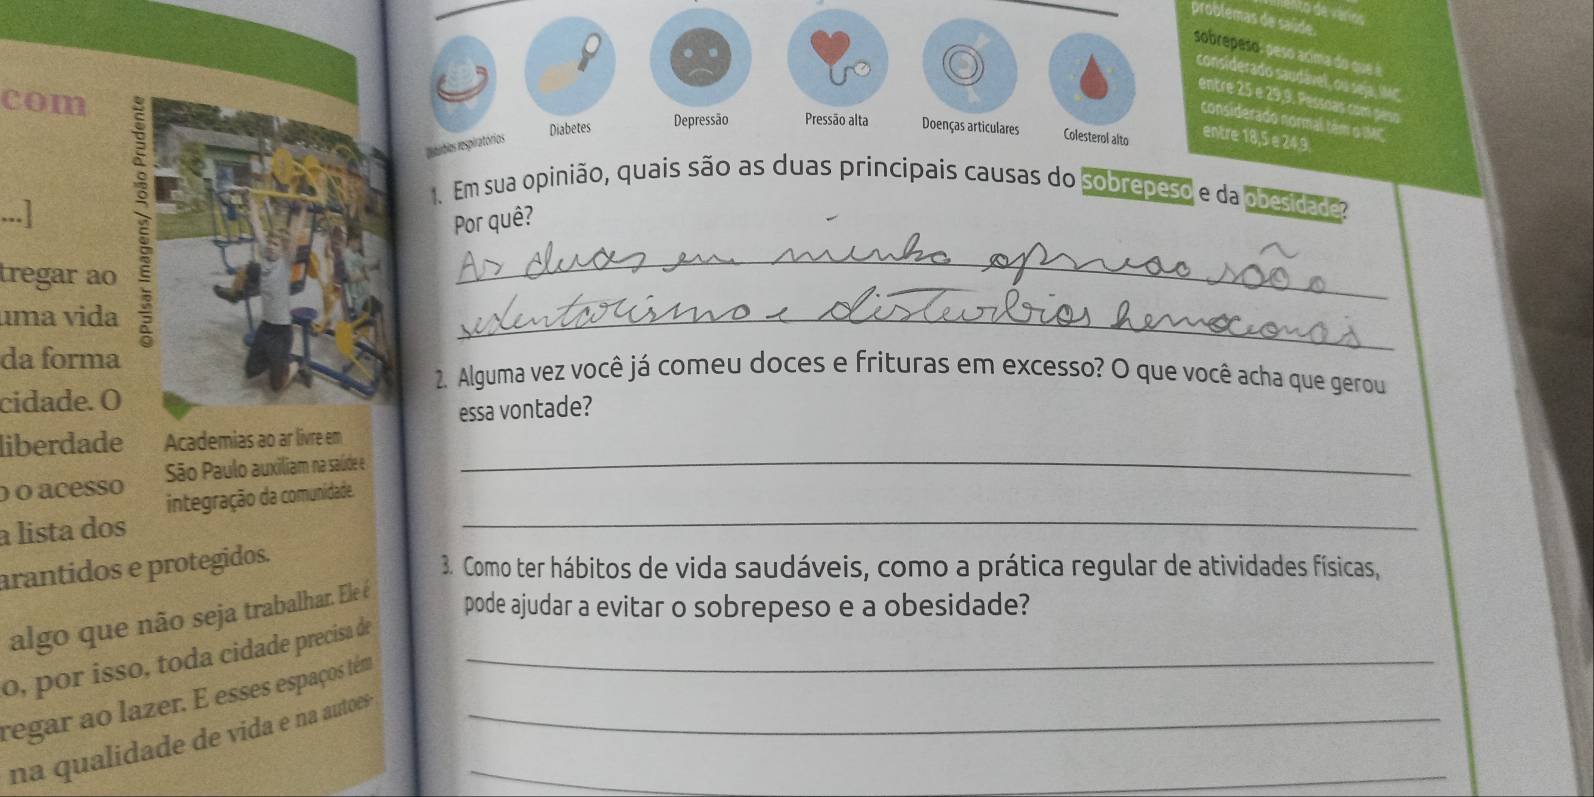 com
...]
tregar ao
uma vida
da forma
cidade. O
liberdade
o o acesso
a lista dos
arantidos e protegidos.
algo que não seja trabalhar. Ele é
o, por isso, toda cidade precisa de
regar ao lazer. E esses espaços têm
na qualidade de vida e na autoes-
©Pulsar Imagens/ João Prudente
Academias ao ar livre em
São Paulo auxiliam na saúde e
integração da comunidade.
Distúrbios respiratórios
Diabetes
Depressão
Pressão alta
Doenças articulares
Colesterol alto
de vários
problemas de saúde.
sobrepeso: peso acima do que é
considerado saudável, ou seja, IMC
entre 25 e 29,9. Pessoas com peso
considerado normal têm o IMC
entre 18,5 e 24,9.
1. Em sua opinião, quais são as duas principais causas do sobrepeso e da obesidade?
Por quê?
As duas em minha opniao são o
sedentarismo e disturbios hemocionais
2. Alguma vez você já comeu doces e frituras em excesso? O que você acha que gerou
essa vontade?
3. Como ter hábitos de vida saudáveis, como a prática regular de atividades físicas,
pode ajudar a evitar o sobrepeso e a obesidade?